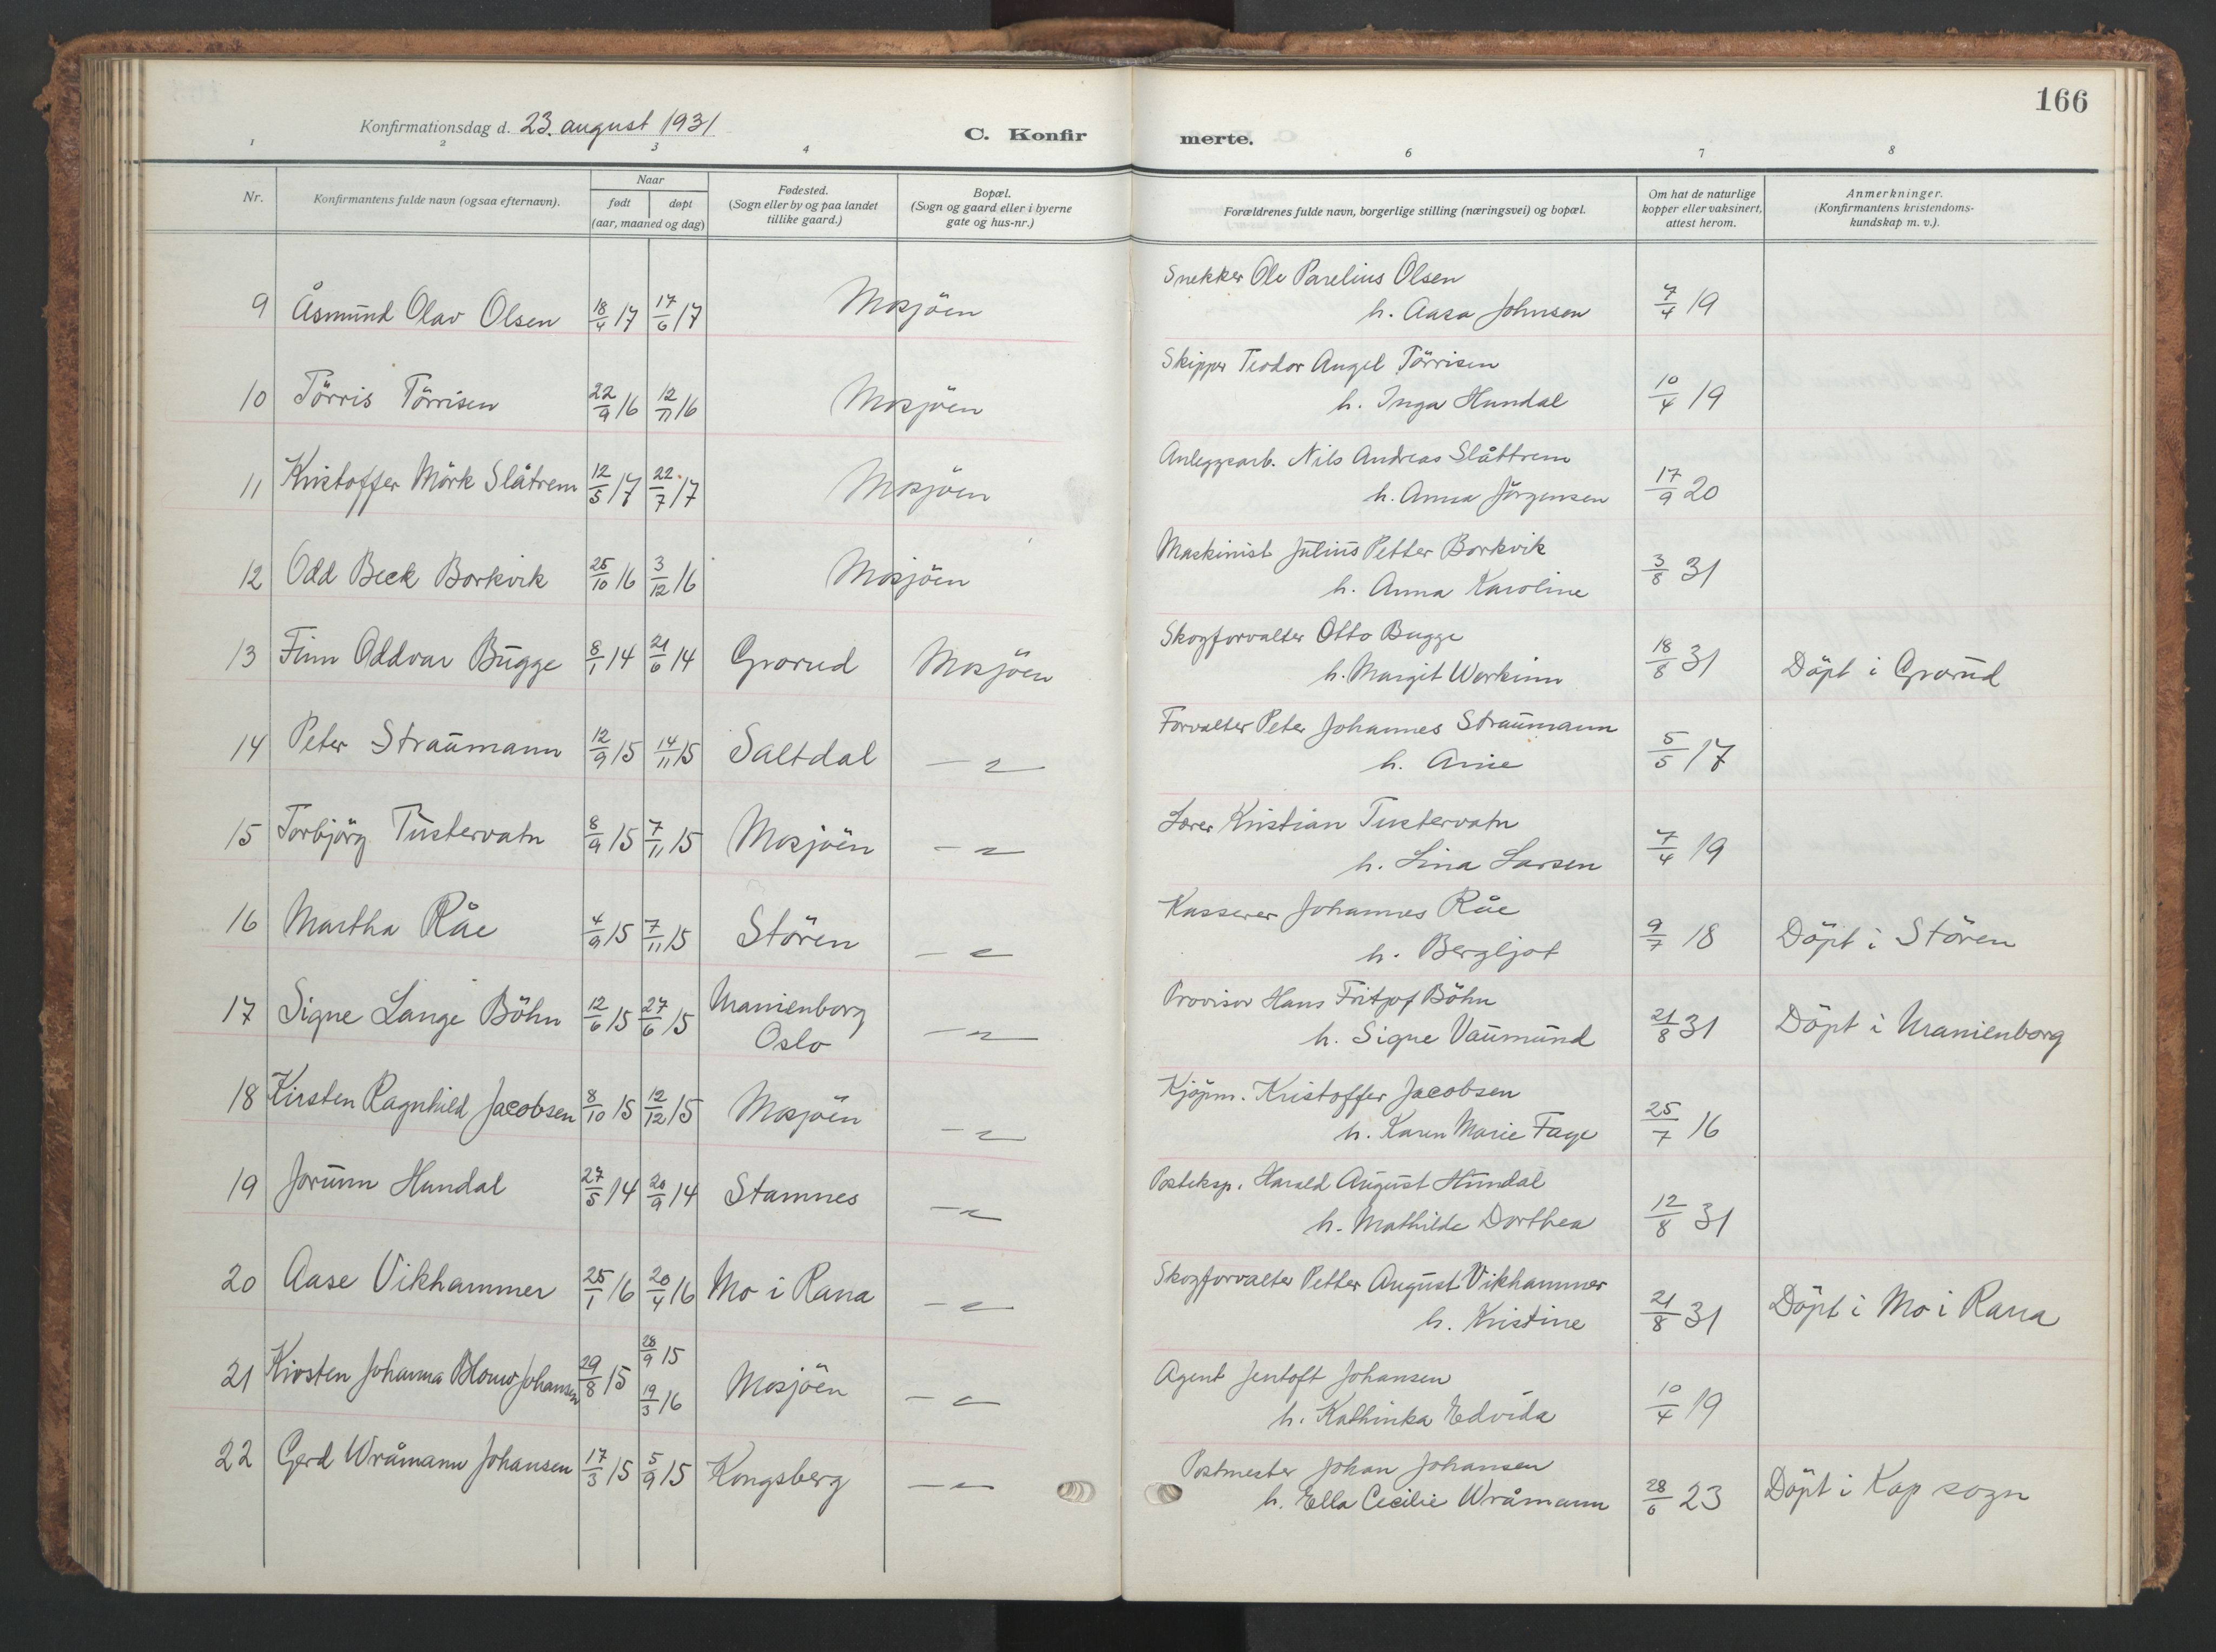 166
Konfirmationsdag d. 23. august 1931
C. Konfirmerte.
1 2 3 4 6 7 8
Nr.
Konfirmantens fulde navn (ogsaa efternavn).
Naar
født døpt
(aar, maaned og dag)
Fødested.
(Sogn eller by og paa landet
tillike gaard.)
Bopæl.
(Sogn og gaard eller i byerne
gate og hus-nr.)
Forældrenes fulde navn, borgerlige stilling (næringsvei) og bopæl.
Om hat de naturlige
kopper eller vaksinert,
attest herom.
Anmerkninger.
(Konfirmantens kristendoms-
kundskap m. v.).
Snekker Ole Parelius Olsen
9 Åsmund Olav Olsen 18/4 17 17/6 17 Mosjöen h. Aasa Johnsen 7/4 19
Skipper Teodor Angel Törrisen
10 Törris Törrisen 22/9 16 12/11 16 Mosjöen h. Inga Hundal 10/4 19
Anleggsarb. Nils Andreas Slåttrem
11 Kristoffer Mörk Slåtrem 12/5 17 22/7 17 Mosjöen h. Anna Jörgensen 17/9 20
Maskinist Julius Petter Borkvik
12 Odd Beck Borkvik 25/10 16 3/12 16 Mosjöen h. Anna Karoline 3/8 31
Skogforvalter Otto Bugge
13 Finn Oddvar Bugge 8/1 14 21/6 14 Grorud Mosjöen h. Margit Werkinn 18/8 31 Döpt i Grorud
Forvalter Peter Johannes Straumann
14 Peter Straumann 12/9 15 14/11 15 Saltdal — " — h. Arnie 5/5 17
Lærer Kristian Tustervatn
15 Torbjörg Tustervatn 8/9 15 7/11 15 Mosjöen — " — h. Lina Larsen 7/4 19
Kasserer Johannes Råe
16 Martha Råe 4/9 15 7/11 15 Stören — " — h. Bergljot 9/7 18 Döpt i Stören
Provisor Hans Fritjof Böhn
17 Signe Lange Böhn 12/6 15 27/6 15 Uranienborg
Oslo — " — h. Signe Vaumund 21/8 31 Döpt i Uranienborg
Kjöpm. Kristoffer Jacobsen
18 Kirsten Ragnhild Jacobsen 8/10 15 12/12 15 Mosjöen — " — h. Karen Marie Fage 25/7 16
Posteksp. Harald August Hundal
19 Jorunn Hundal 27/5 14 20/9 14 Stamnes — " — h. Mathilde Dorthea 12/8 31
Skogforvalter Petter August Vikhammer
20 Aase Vikhammer 25/1 16 20/4 16 Mo i Rana — " — h. Kristine 21/8 31 Döpt i Mo i Rana
28/9 15
Agent Jentoft Johansen
21 Kirsten Johanna Johansen 29/8 15 19/3 16 Mosjöen — " — h. Kathinka Edvida 10/4 19
Postmester Johan Johansen
22 Gerd Wråmann Johansen 17/3 15 5/9 15 Kongsberg — " — h. Ella Cecilie Wråmann 28/6 23 Döpt i Kap sogn